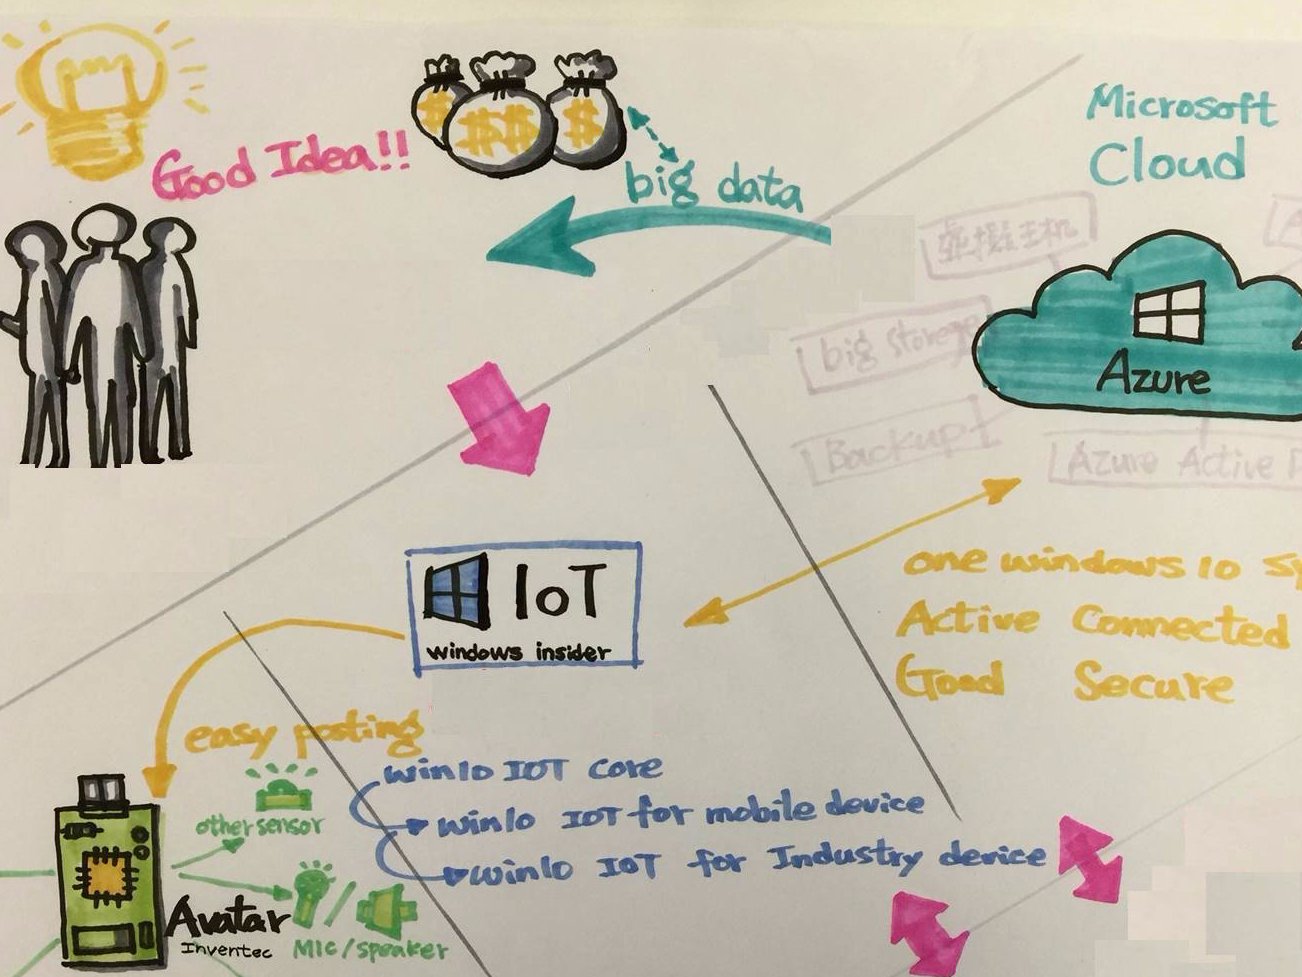 Good Idea!!
$ $$ $
big data
Microsoft
Cloud
虛擬主机
big storage
Backup
Azure
Azure Active
one windows 10
Active Connected
Good Secure
IoT
windows insider
easy posting
win10 IOT core
win10 IOT for mobile device
win10 IOT for Industry device
other sensor
Avatar
Inventec
MIC/speaker